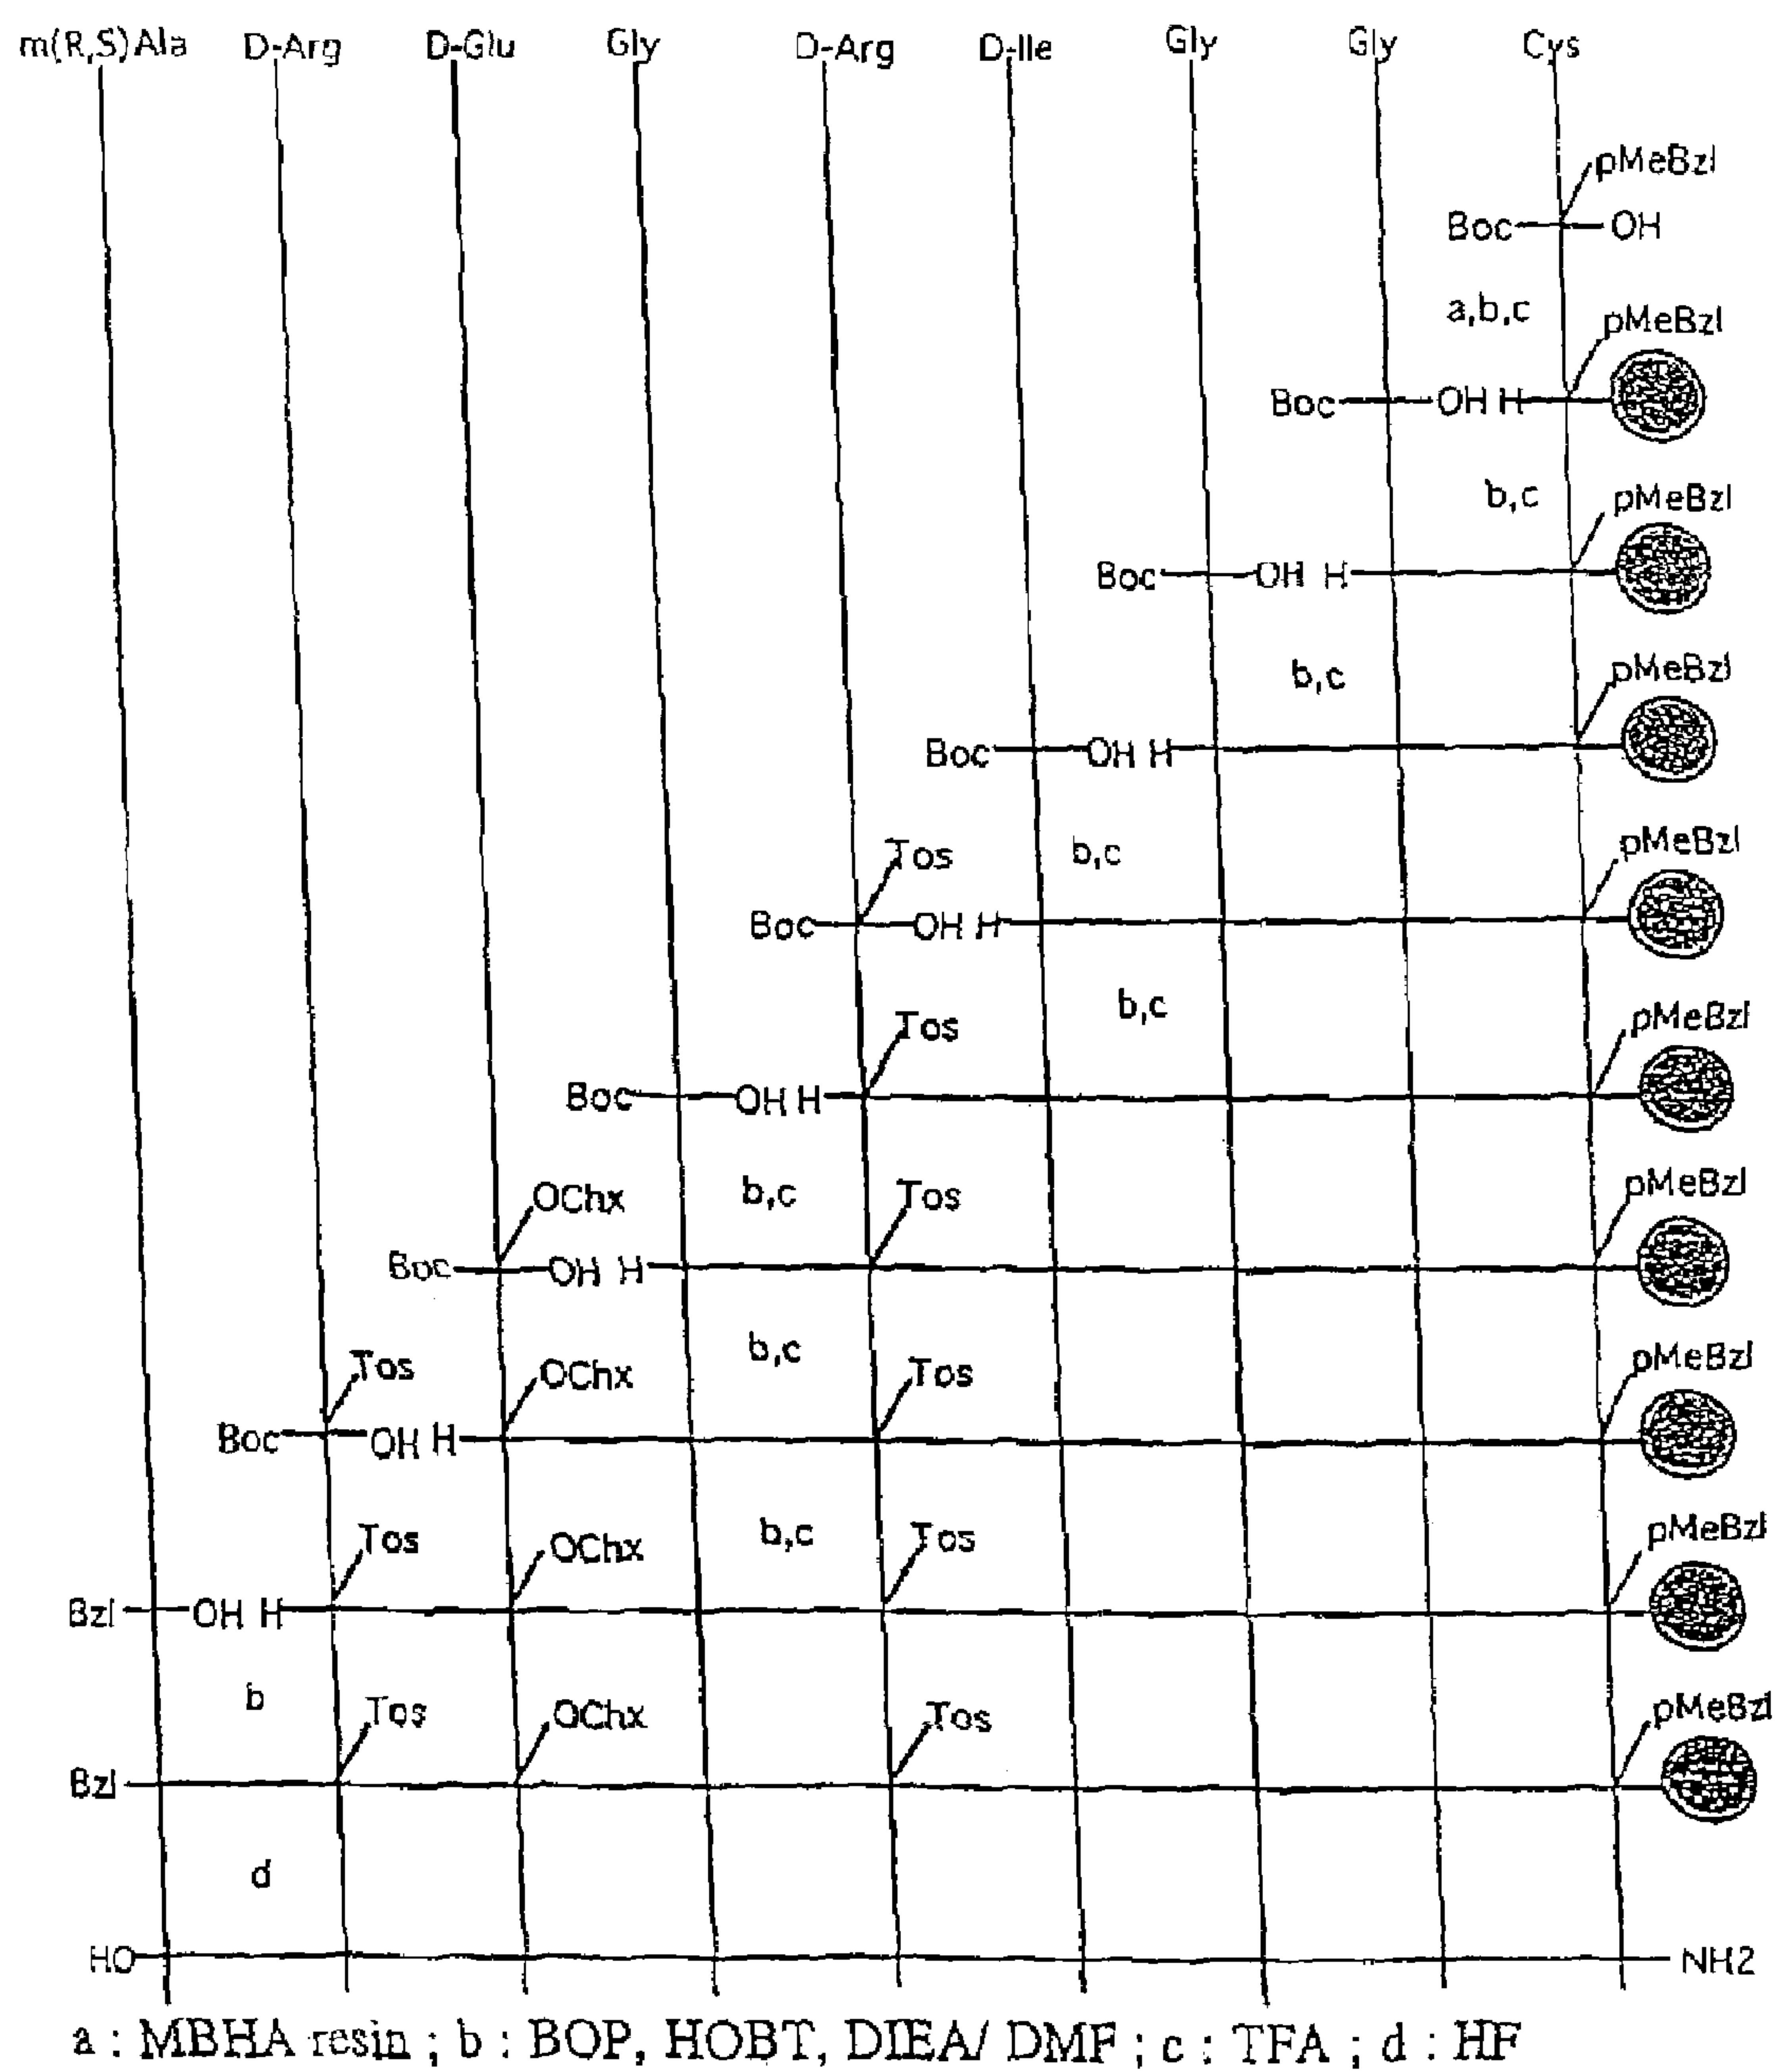 m(R,S)Ala D-Arg D-Glu Gly D-Arg D-Ile Gly Gly Cys
pMeBzl
Boc OH
a,b,c
pMeBzl
Boc OH H
b,c
pMeBzl
Boc OH H
b,c
pMeBzl
Boc OH H
Tos b,c pMeBzl
Boc OH H
b,c
Tos pMeBzl
Boc OH H
OChx b,c Tos pMeBzl
Boc OH H
b,c
Tos OChx Tos pMeBzl
Boc OH H
Tos OChx b,c Tos pMeBzl
Bzl OH H
b
Tos OChx Tos pMeBzl
Bzl
d
HO NH2
a : MBHA resin ; b : BOP, HOBT, DIEA/ DMF ; c : TFA ; d : HF